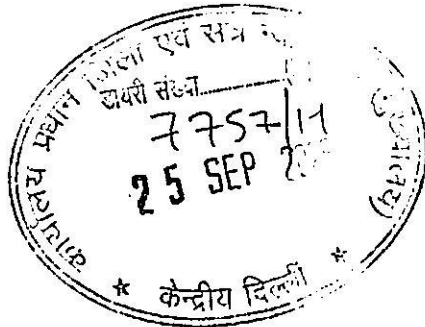 कार्यालय प्रधान जिला एवं सत्र
डायरी संख्या
7757/11
25 SEP
केन्द्रीय दिल्ली